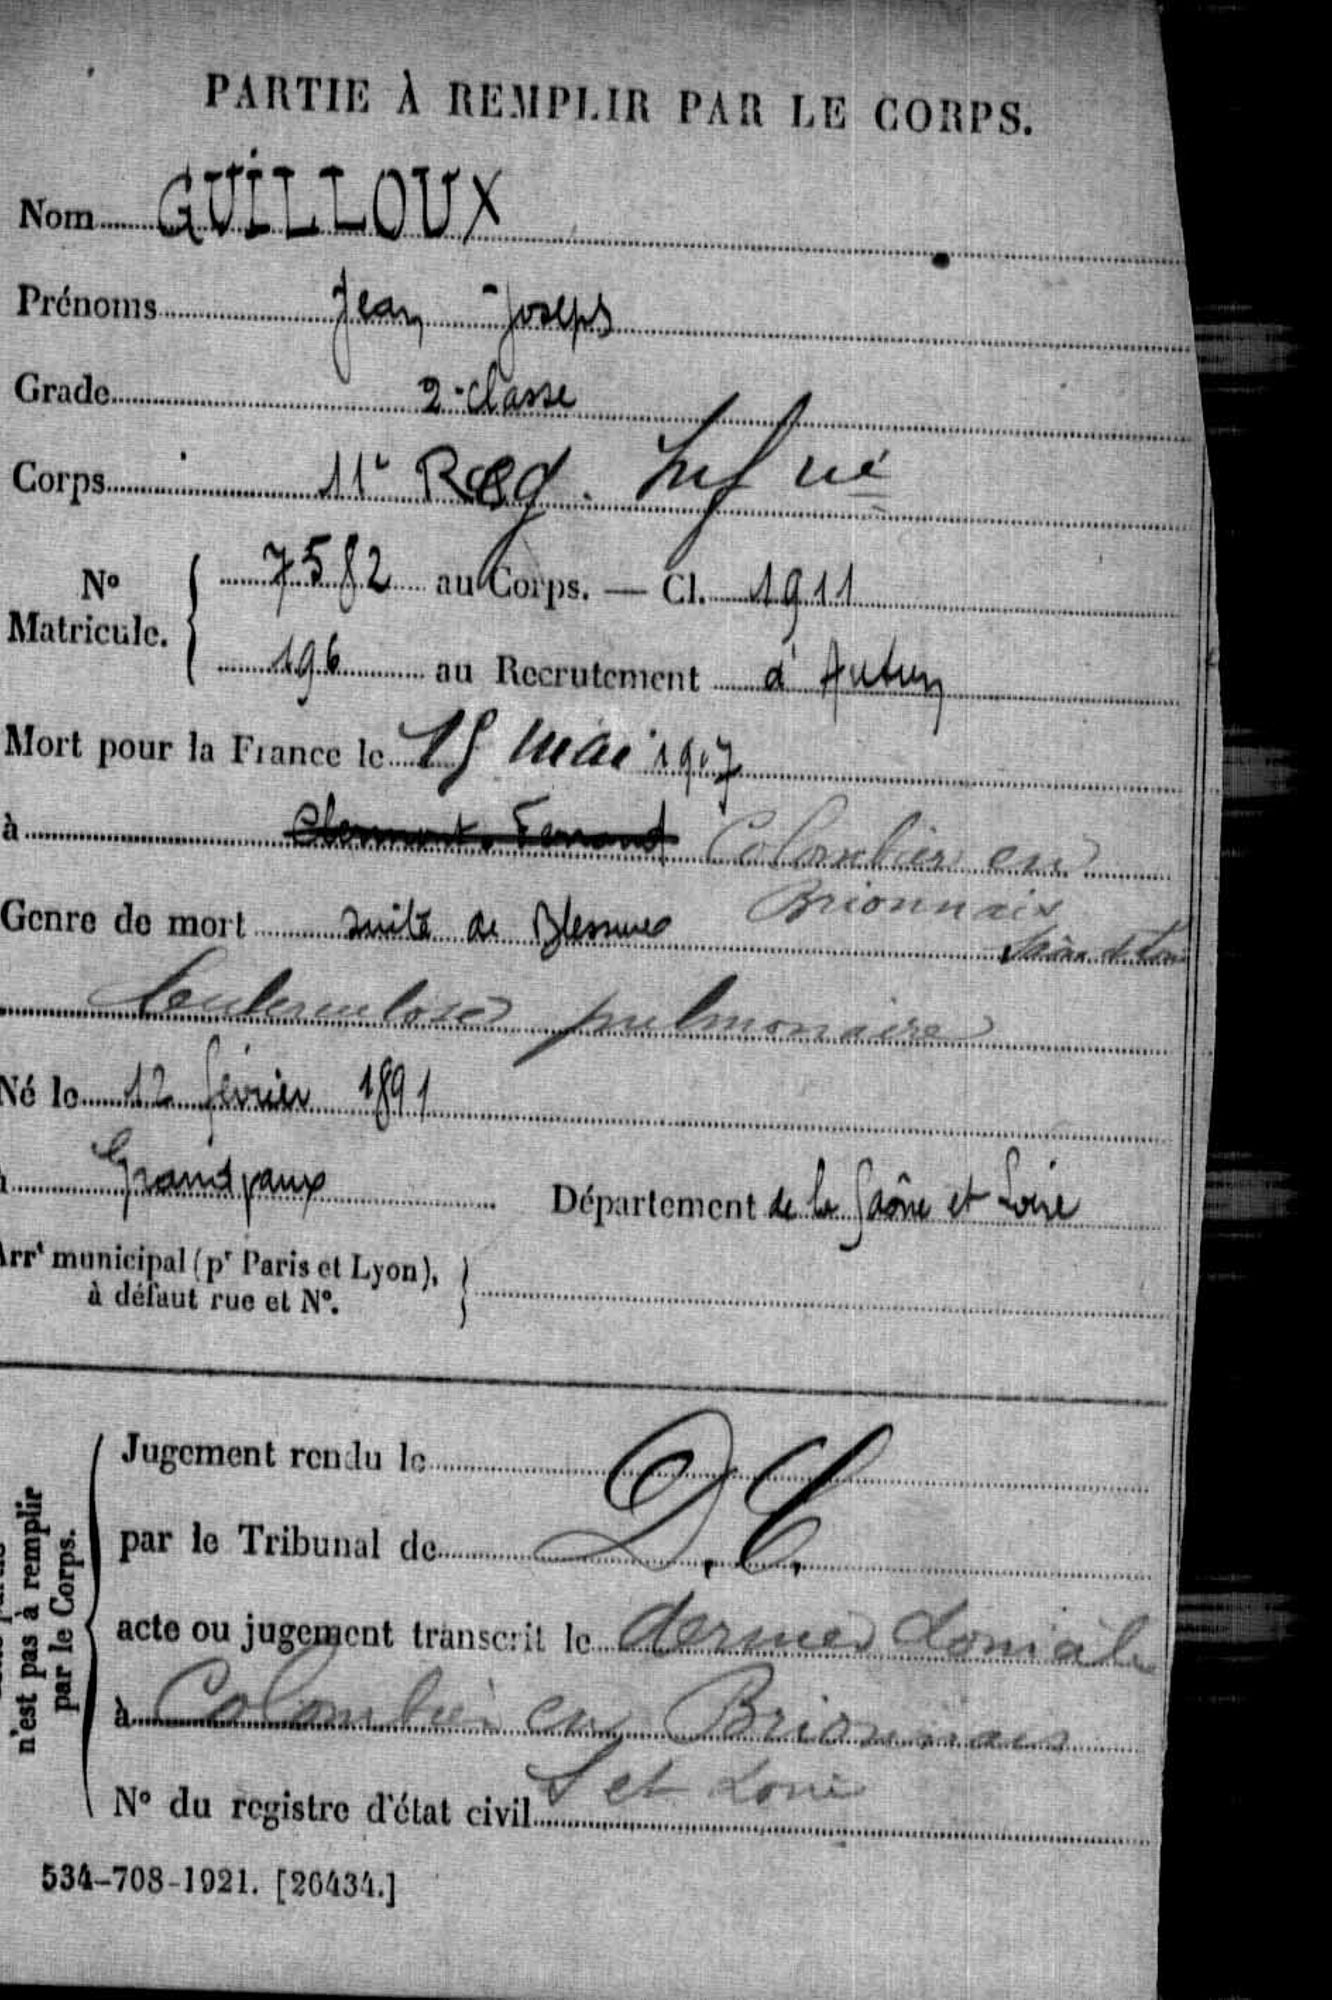 PARTIE À REMPLIR PAR LE CORPS.
Nom GUILLOUX
Prénoms Jean Joseph
Grade 2e classe
Corps 11e Reg. Infrie
No Matricule. { 7582 au Corps. — Cl. 1911
196 au Recrutement d'Autun
Mort pour la France le 15 mai 1917
à Clermont-Ferrand Colombier en
Brionnais
Genre de mort suite de Blessures Saône et Loire
tuberculose pulmonaire
Né le 12 février 1891
Grandvaux Département de la Saône et Loire
Arrt municipal (pr Paris et Lyon),
à défaut rue et No. }
Jugement rendu le
D.C.
par le Tribunal de
acte ou jugement transcrit le dernier domicile
à Colombier en Brionnais
S et Loire
No du registre d'état civil
n'est pas à remplir
par le Corps.
534-708-1921. [26434.]